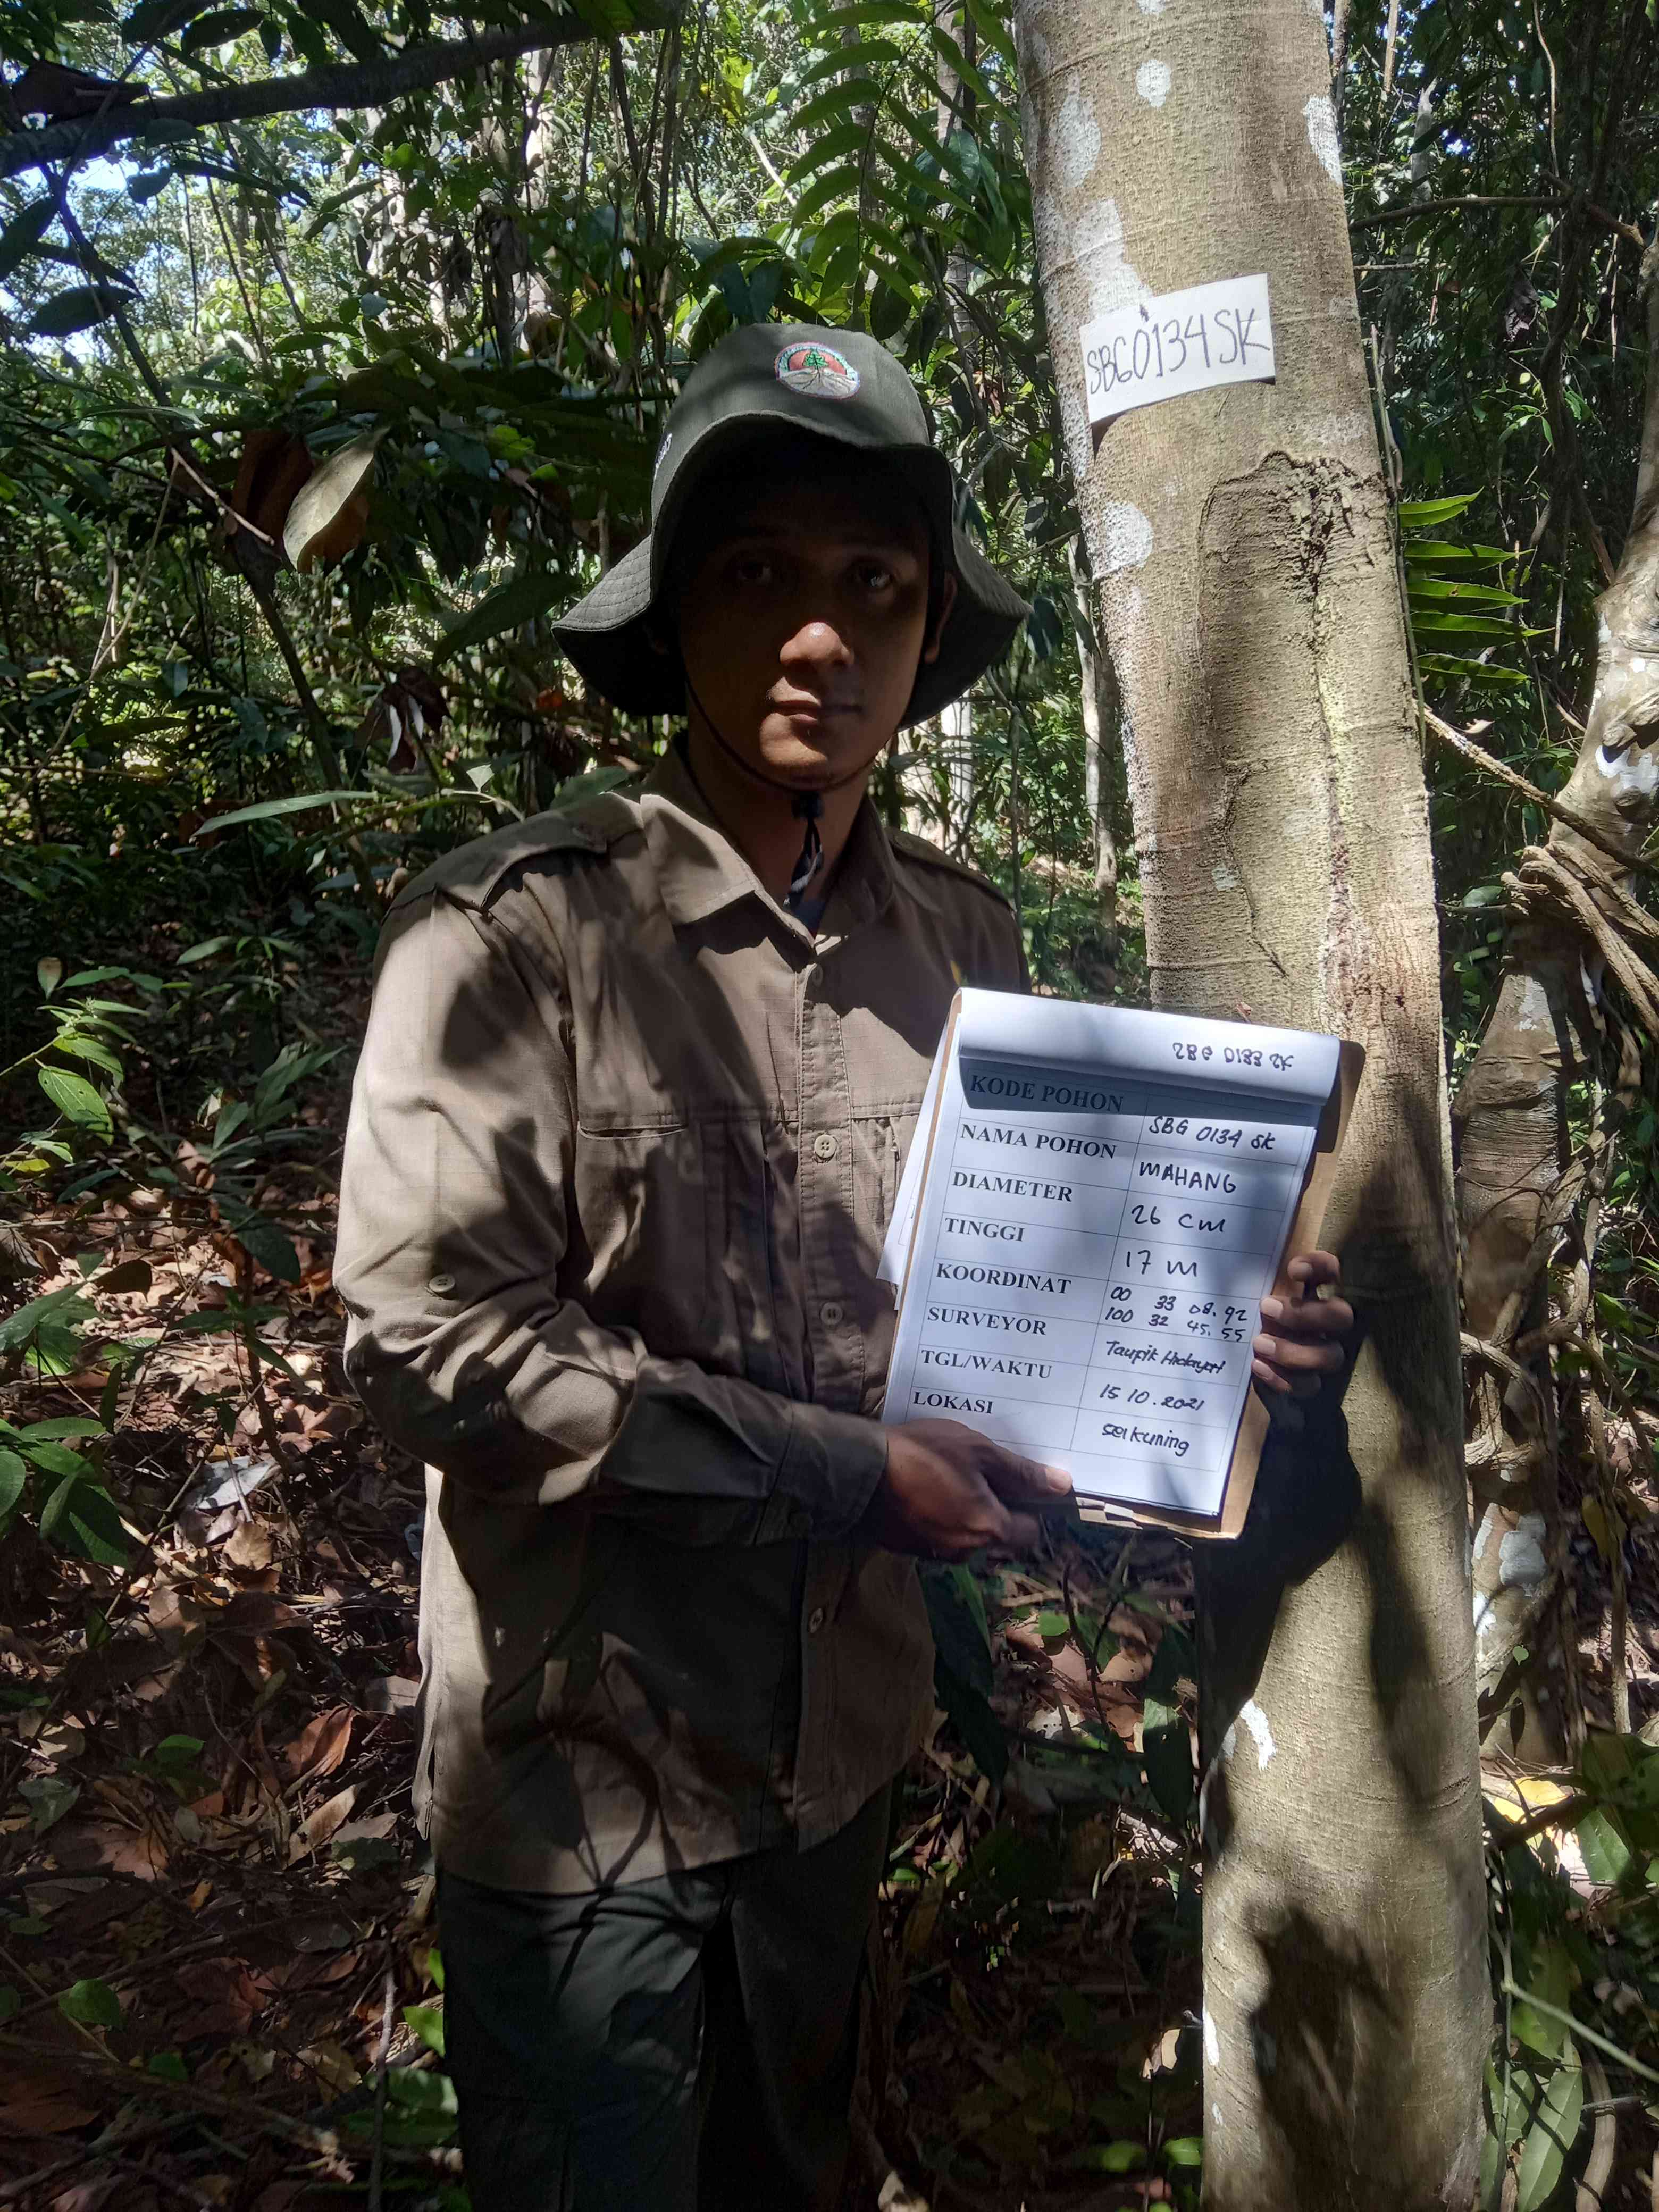 SBG0134SK
SBG 0133 SK
KODE POHON SBG 0134 SK
NAMA POHON MAHANG
DIAMETER 26 cm
TINGGI 17 m
KOORDINAT 00 33 08.92
100 32 45.55
SURVEYOR Taupik Hidayat
TGL/WAKTU 15 10.2021
LOKASI sei kuning